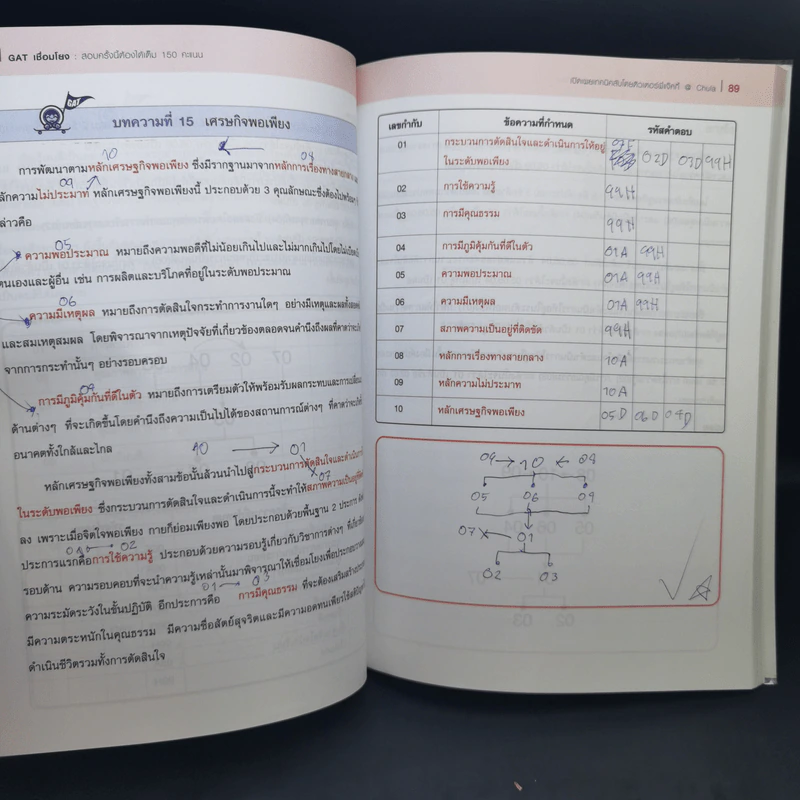 GAT เชื่อมโยง : สอบครั้งนี้ต้องได้เต็ม 150 คะแนน
GAT
บทความที่ 15 เศรษฐกิจพอเพียง
10
08
การพัฒนาตามหลักเศรษฐกิจพอเพียง ซึ่งมีรากฐานมาจากหลักการเรื่องทางสายกลาง
09
หลักความไม่ประมาท หลักเศรษฐกิจพอเพียงนี้ ประกอบด้วย 3 คุณลักษณะซึ่งต้องไปพร้อมๆ
กล่าวคือ
05
ความพอประมาณ หมายถึงความพอดีที่ไม่น้อยเกินไปและไม่มากเกินไปโดยไม่เบียดเบียน
ตนเองและผู้อื่น เช่น การผลิตและบริโภคที่อยู่ในระดับพอประมาณ
06
ความมีเหตุผล หมายถึงการตัดสินใจกระทำการงานใดๆ อย่างมีเหตุและผล
และสมเหตุสมผล โดยพิจารณาจากเหตุปัจจัยที่เกี่ยวข้องตลอดจนคำนึงถึงผลที่คาดว่าจะ
จากการกระทำนั้นๆ อย่างรอบครอบ
การมีภูมิคุ้มกันที่ดีในตัว หมายถึงการเตรียมตัวให้พร้อมรับผลกระทบและการ
ด้านต่างๆ ที่จะเกิดขึ้นโดยคำนึงถึงความเป็นไปได้ของสถานการณ์ต่างๆ ที่คาดว่าจะ
อนาคตทั้งใกล้และไกล
10 01
หลักเศรษฐกิจพอเพียงทั้งสามข้อนั้นล้วนนำไปสู่กระบวนการตัดสินใจและดำเนินการ
07
ในระดับพอเพียง ซึ่งกระบวนการตัดสินใจและดำเนินการนี้จะทำให้สภาพความเป็นอยู่
ลง เพราะเมื่อจิตใจพอเพียง กายก็ย่อมเพียงพอ โดยประกอบด้วยพื้นฐาน 2 ประการ
01 02
ประการแรกคือการใช้ความรู้ ประกอบด้วยความรอบรู้เกี่ยวกับวิชาการต่างๆ ที่เกี่ยว
รอบด้าน ความรอบคอบที่จะนำความรู้เหล่านั้นมาพิจารณาให้เชื่อมโยงเพื่อประกอบการ
01 03
ความระมัดระวังในขั้นปฏิบัติ อีกประการคือ การมีคุณธรรม ที่จะต้องเสริมสร้าง
มีความตระหนักในคุณธรรม มีความซื่อสัตย์สุจริตและมีความอดทนเพียรใช้สติปัญญา
ดำเนินชีวิตรวมทั้งการตัดสินใจ
เปิดเผยเทคนิคลับโดยติวเตอร์พี่เจ๊กกี้ @ Chula 89
เลขกำกับ ข้อความที่กำหนด รหัสคำตอบ
01 กระบวนการตัดสินใจและดำเนินการให้อยู่ 07F
ในระดับพอเพียง 02D 03D 99H
02 การใช้ความรู้ 99H
03 การมีคุณธรรม 99H
04 การมีภูมิคุ้มกันที่ดีในตัว 01A 99H
05 ความพอประมาณ 01A 99H
06 ความมีเหตุผล 01A 99H
07 สภาพความเป็นอยู่ที่ติดขัด 99H
08 หลักการเรื่องทางสายกลาง 10A
09 หลักความไม่ประมาท 10A
10 หลักเศรษฐกิจพอเพียง 05D 06D 04D
09 10 08
05 06 04
07 01
02 03